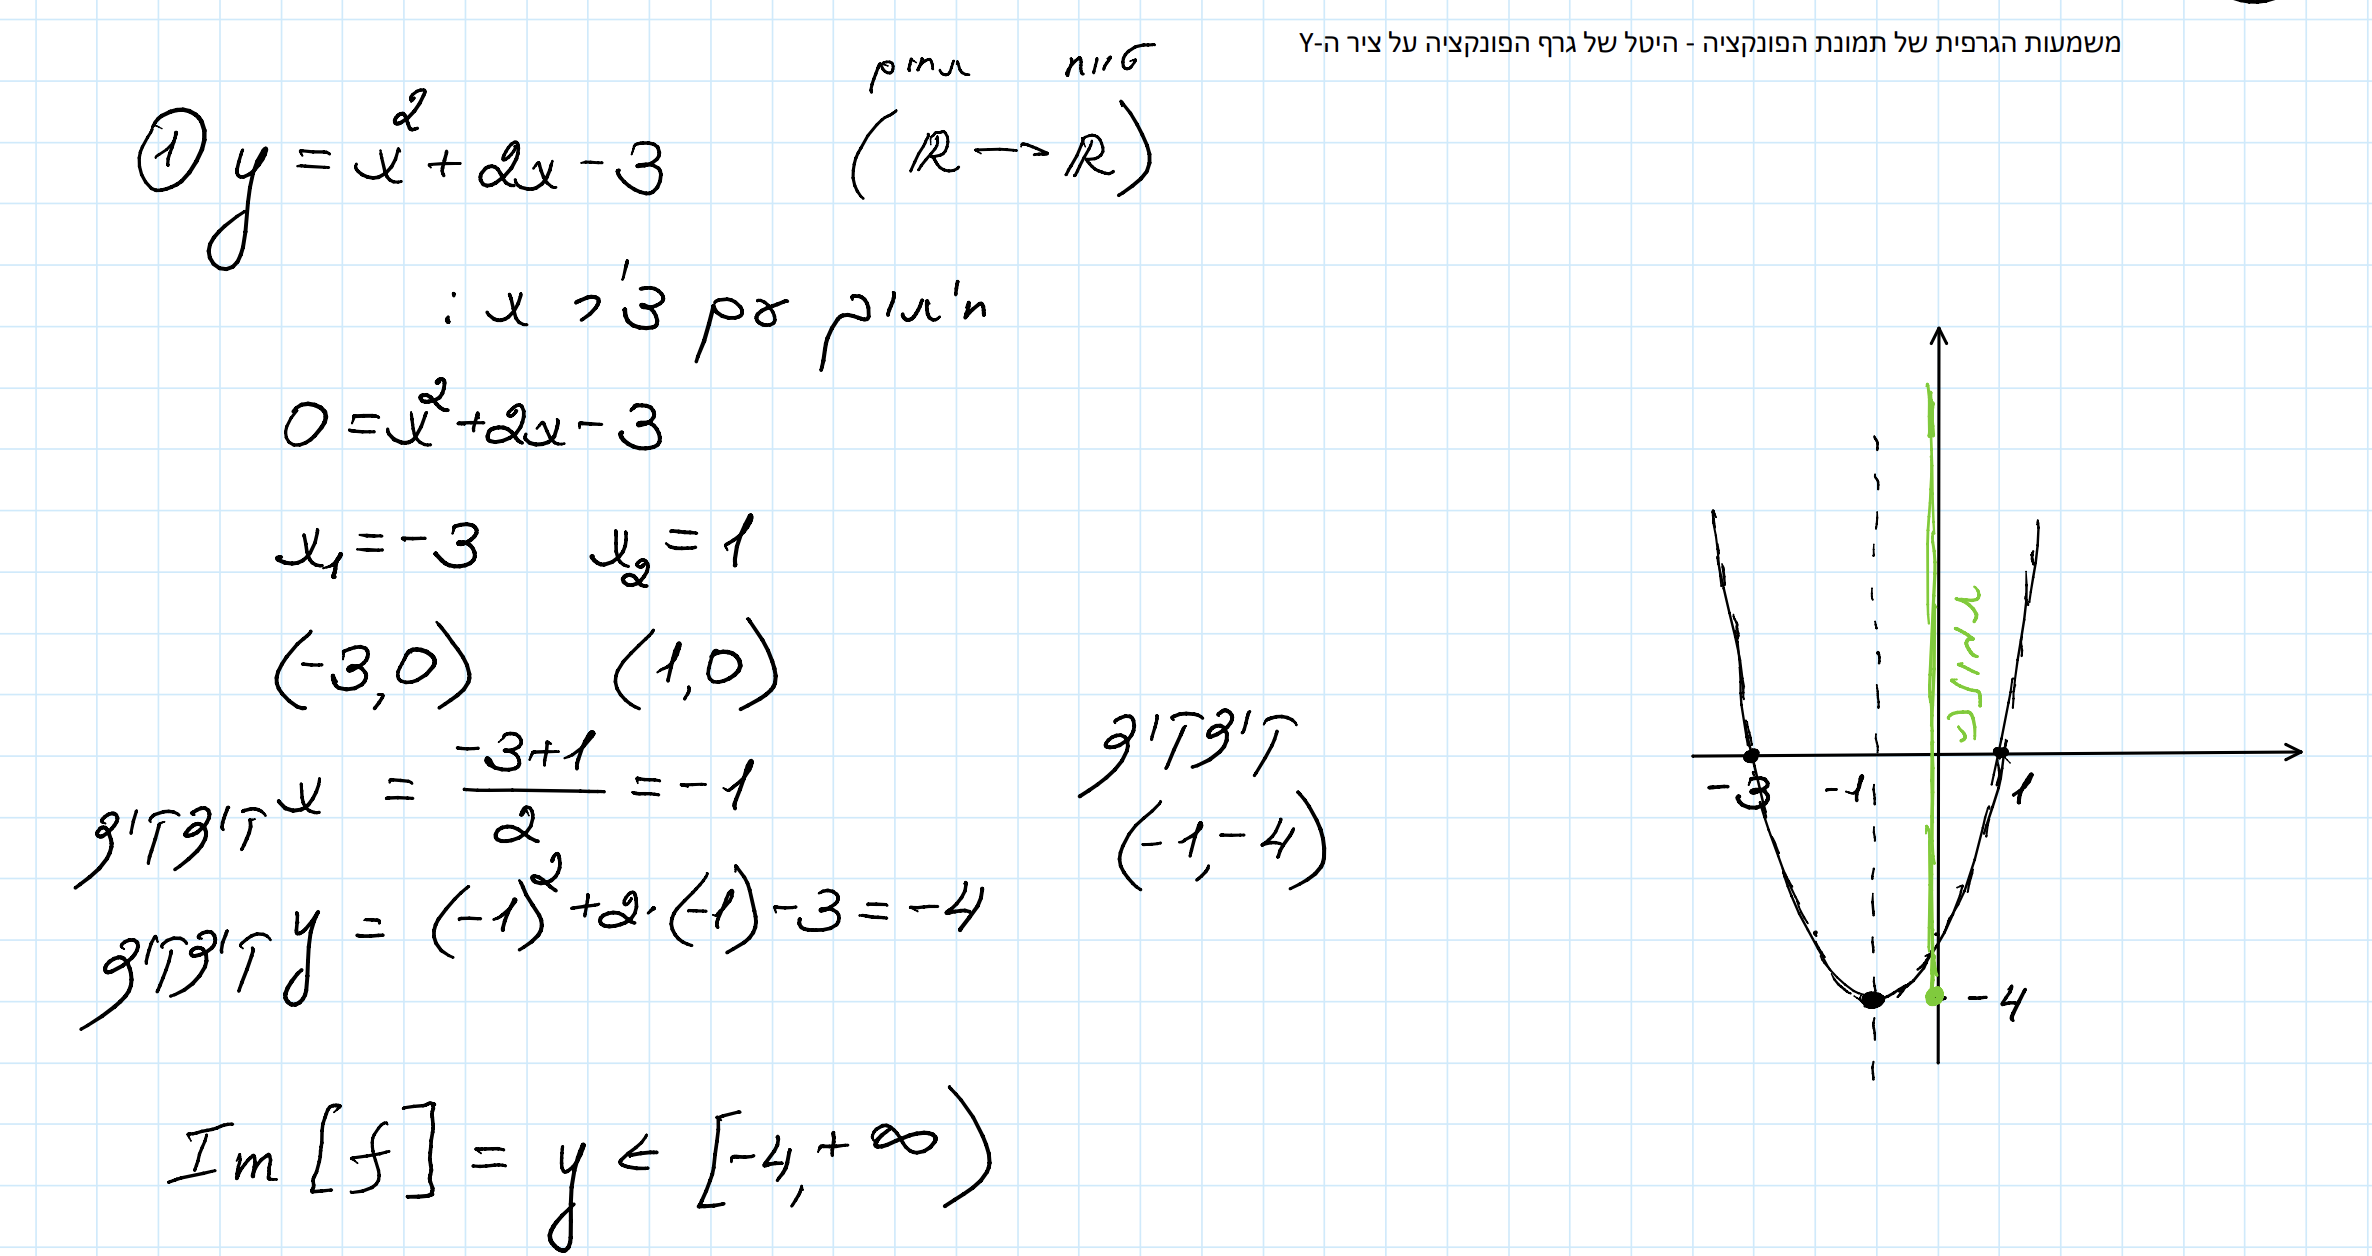 משמעות הגרפית של תמונת הפונקציה - היטל של גרף הפונקציה על ציר ה-Y
תחום טווח
① y = x² + 2x - 3 (ℝ → ℝ)
חיתוך עם ציר x :
0 = x² + 2x - 3
x₁ = -3 x₂ = 1
(-3, 0) (1, 0)
x קידקוד = (-3+1)/2 = -1
y קידקוד = (-1)² + 2·(-1) - 3 = -4
קידקוד
(-1, -4)
Im[f] = y ∈ [-4, +∞)
תמונה
-3 -1 1
-4